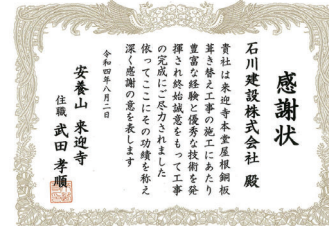 感謝状
石川建設株式会社 殿
貴社は来迎寺本堂屋根銅板
葺き替え工事の施工にあたり
豊富な経験と優秀な技術を発
揮され終始誠意をもって工事
の完成にご尽力されました
依ってここにその功績を称え
深く感謝の意を表します
令和四年八月二日
安養山 来迎寺
住職 武田孝順